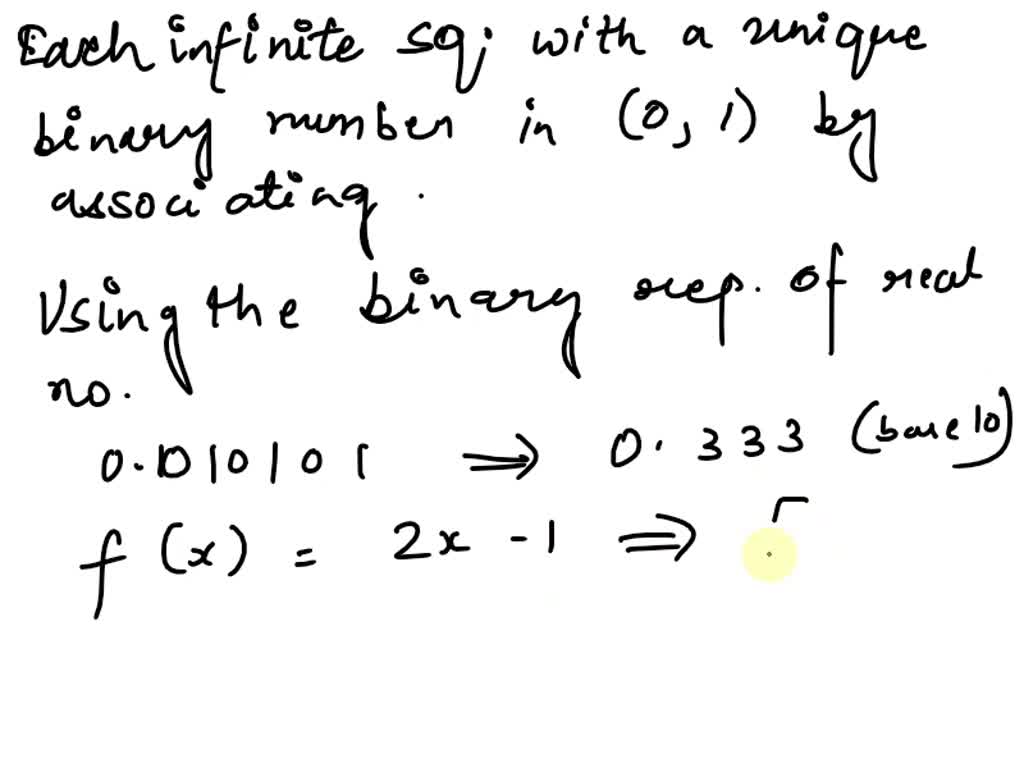 Each infinite sq; with a unique
binary number in (0, 1) by
associating.
Using the binary rep. of real
no.
0.010101 ⇒ 0.333 (base 10)
f(x) = 2x - 1 ⇒